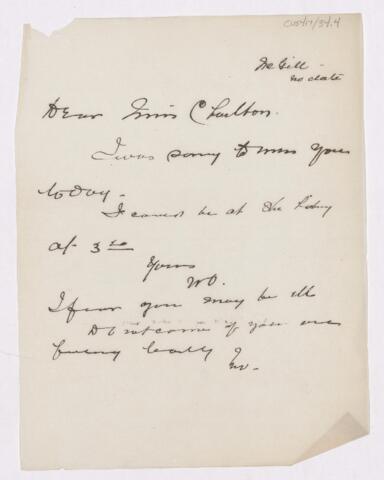 CUS417/34.4
McGill -
no date
Dear Miss Charlton.
I was sorry to miss you
to day -
I cannot be at the Liby
at 3 30
Yours
WO.
I fear you may be ill
Do not come if you are
feeling badly
WO.